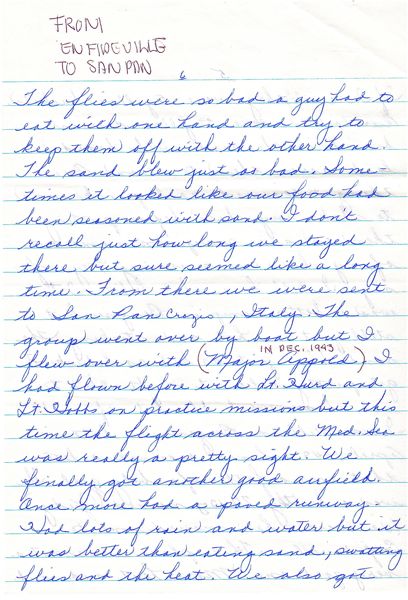 FROM
ENFIDEVILLE
TO SAN PAN
6
The flies were so bad a guy had to
eat with one hand and try to
keep them off with the other hand.
The sand blew just as bad. Some-
times it looked like our food had
been seasoned with sand. I don't
recall just how long we stayed
there but sure seemed like a long
time. From there we were sent
to San Pan Crazio, Italy. The
group went over by boat but I
IN DEC. 1943
flew over with (Major Appold) I
had flown before with Lt. Hurd and
Lt. Hobbs on practice missions but this
time the flight across the Med. Sea
was really a pretty sight. We
finally got another good airfield.
Once more had a paved runway.
Had lots of rain and water but it
was better than eating sand, swatting
flies and the heat. We also got